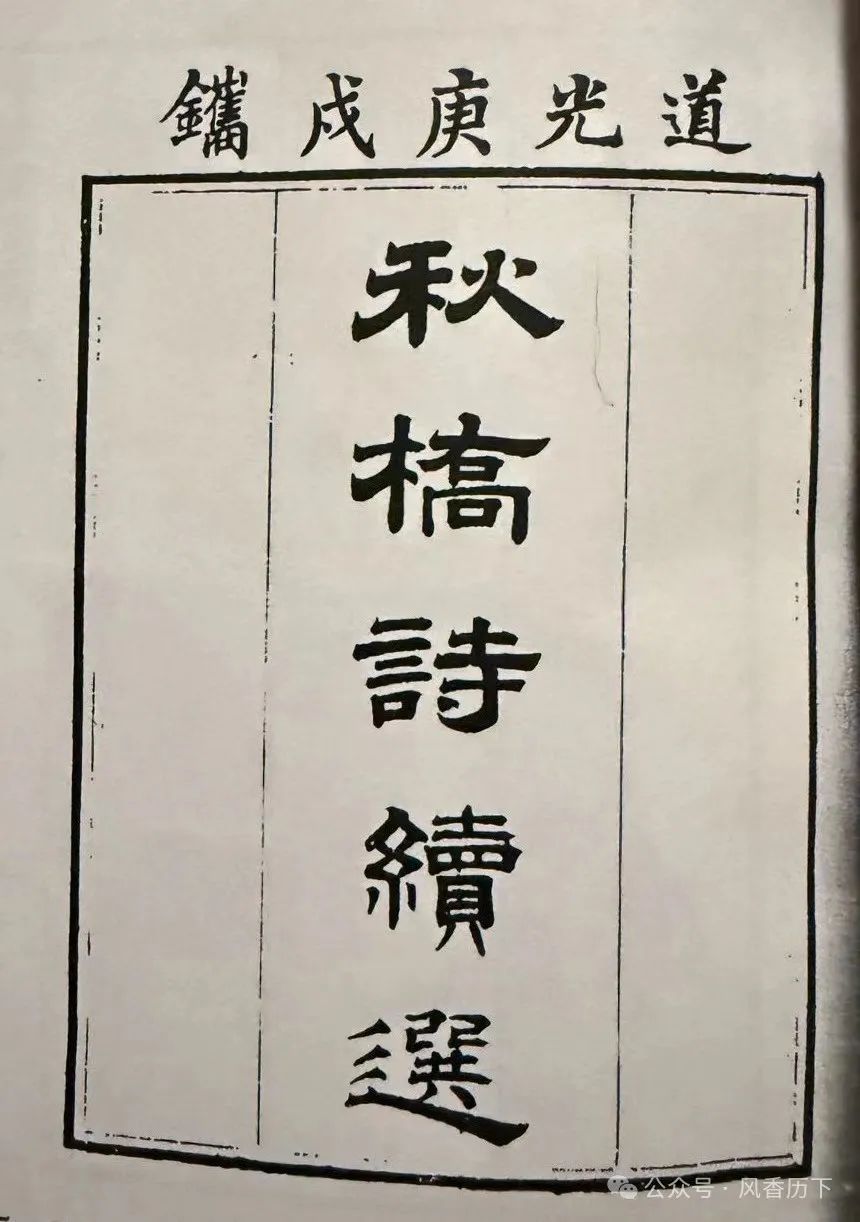 道光庚戌鐫
秋橋詩續選
公众号·风香历下